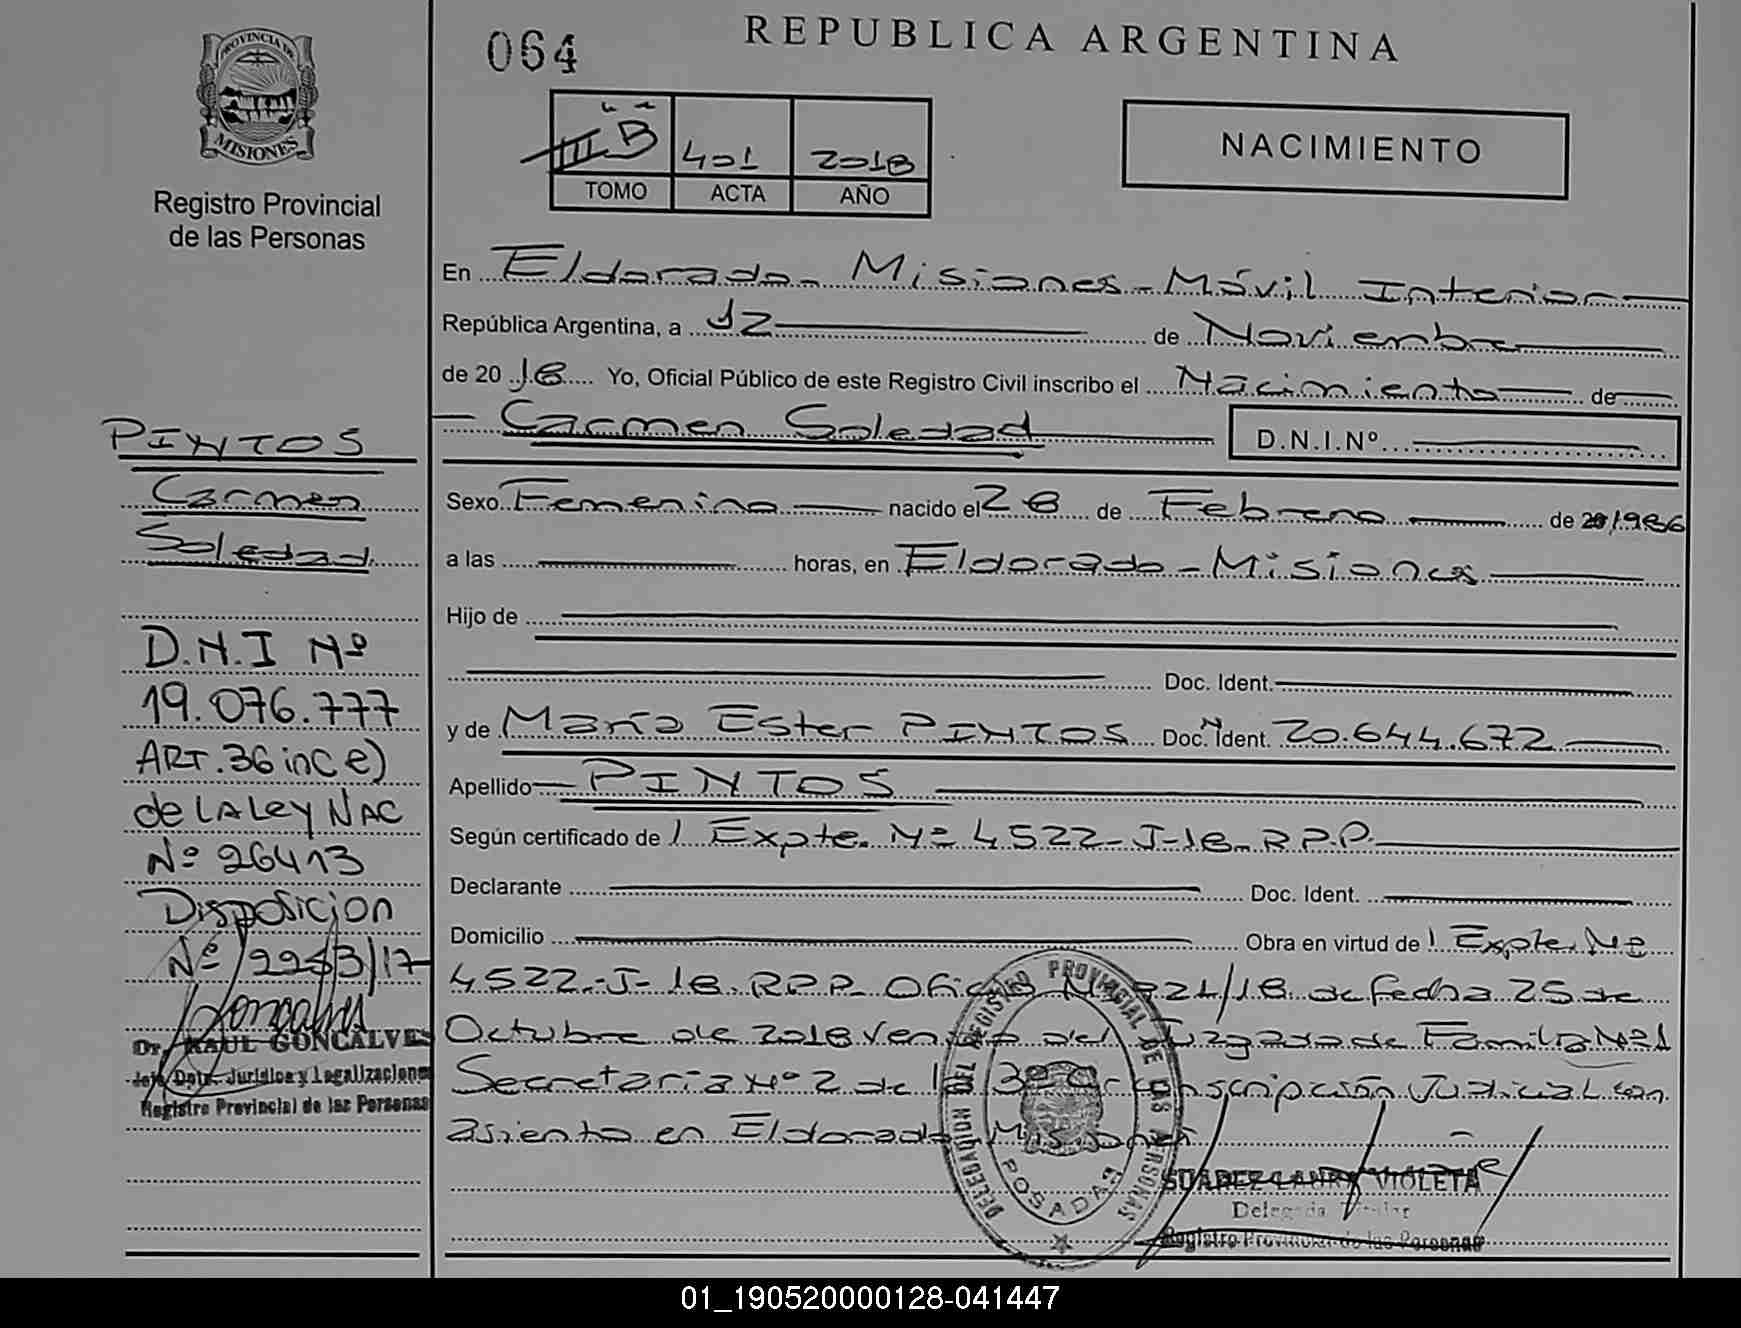 PROVINCIA DE
MISIONES
Registro Provincial
de las Personas
PINTOS
Carmen
Soledad
D.N.I Nº
19.076.777
ART.36 inc e)
de LA Ley NAC
Nº 26413
Disposicion
Nº 2253/17
Dr. RAUL GONCALVES
Jefe Dpto. Jurídica y Legalizaciones
Registro Provincial de las Personas
064
REPUBLICA ARGENTINA
III B 401 2018
TOMO ACTA AÑO
NACIMIENTO
En Eldorado - Misiones - Móvil Interior
República Argentina, a 12 de Noviembre
de 20 18 Yo, Oficial Público de este Registro Civil inscribo el Nacimiento de
Carmen Soledad D.N.I.Nº
Sexo Femenino nacido el 28 de Febrero de 20 1986
a las horas, en Eldorado - Misiones
Hijo de
Doc. Ident.
y de María Ester PINTOS Doc. Ident. 20.644.672
Apellido PINTOS
Según certificado de / Expte. Nº 4522-J-18-R.P.P.
Declarante Doc. Ident.
Domicilio Obra en virtud de / Expte. Nº
4522-J-18. R.P.P. Oficio Nº 821/18 de fecha 25 de
Octubre de 2018 venido del Juzgado de Familia Nº1
Secretaria Nº 2 de la 3º Circunscripción Judicial con
asiento en Eldorado Misiones
DELEGACION DEL REGISTRO PROVINCIAL DE LAS PERSONAS
POSADAS
SUAREZ LAURA VIOLETA
Delegada Titular
Registro Provincial de las Personas
01_190520000128-041447